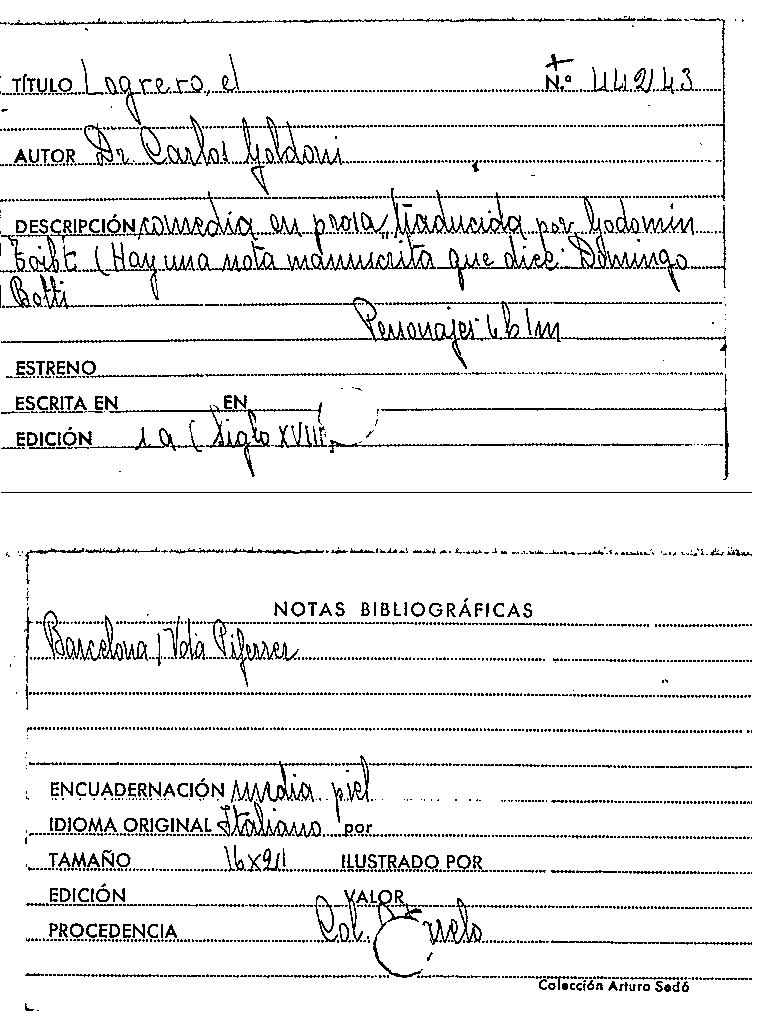 TÍTULO Logrero, el N.º 44243
AUTOR Dr Carlos Goldoni
DESCRIPCIÓN comedia en prosa, traducida por Godomin
(Hay una nota manuscrita que dice: Domingo
Botti
Personajes 6h 1m
ESTRENO
ESCRITA EN EN
EDICIÓN 1a (Siglo XVIII)
NOTAS BIBLIOGRÁFICAS
Barcelona / Vda Piferrer
ENCUADERNACIÓN media piel
IDIOMA ORIGINAL Italiano por
TAMAÑO 16x21 ILUSTRADO POR
EDICIÓN VALOR
PROCEDENCIA Col.
Colección Arturo Sedó